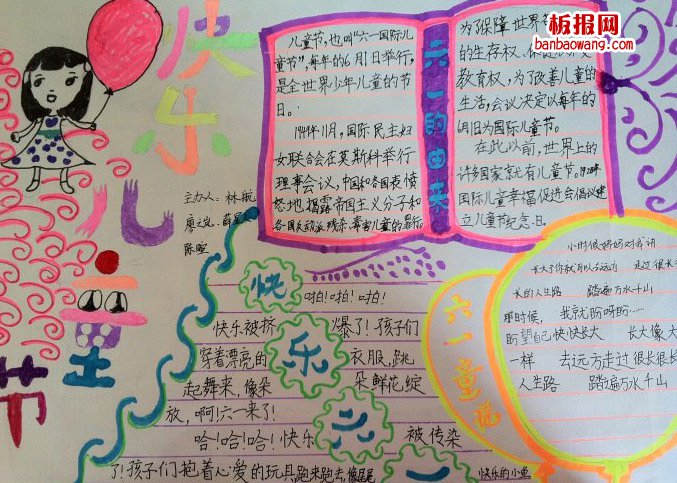 板报网
banbaowang.com
快乐儿童节
主办人：林
陈
儿童节，也叫“六一国际儿
童节”，每年的6月1日举行，
是全世界少年儿童的节
日。
1949年11月，国际民主妇
女联合会在莫斯科举行
理事会议，中国和各国表愤
怒地揭露帝国主义分子和
各国反动派残杀、毒害儿童的
六一的由来
为保障世界
的生存权、保
教育权，为了改善儿童的
生活，会议决定以每年的
6月1日为国际儿童节。
在此以前，世界上的
许多国家就有儿童节。
国际儿童幸福促进会倡议建
立儿童节纪念日。
快乐六一
啪！啪！啪！
快乐被挤爆了！孩子们
穿着漂亮的衣服，跳
起舞来，像朵朵鲜花绽
放，啊！六一来了！
哈！哈！哈！快乐被传染
了！孩子们抱着心爱的玩具跑来跑去，像
六一童谣
小时候妈妈对我讲
走过很长
长的人生路 踏遍万水千山
那时候， 我就盼呀盼
盼望自己快快长大 长大像大
一样 去远方走过很长很长
人生路 踏遍万水千山
快乐的小鱼